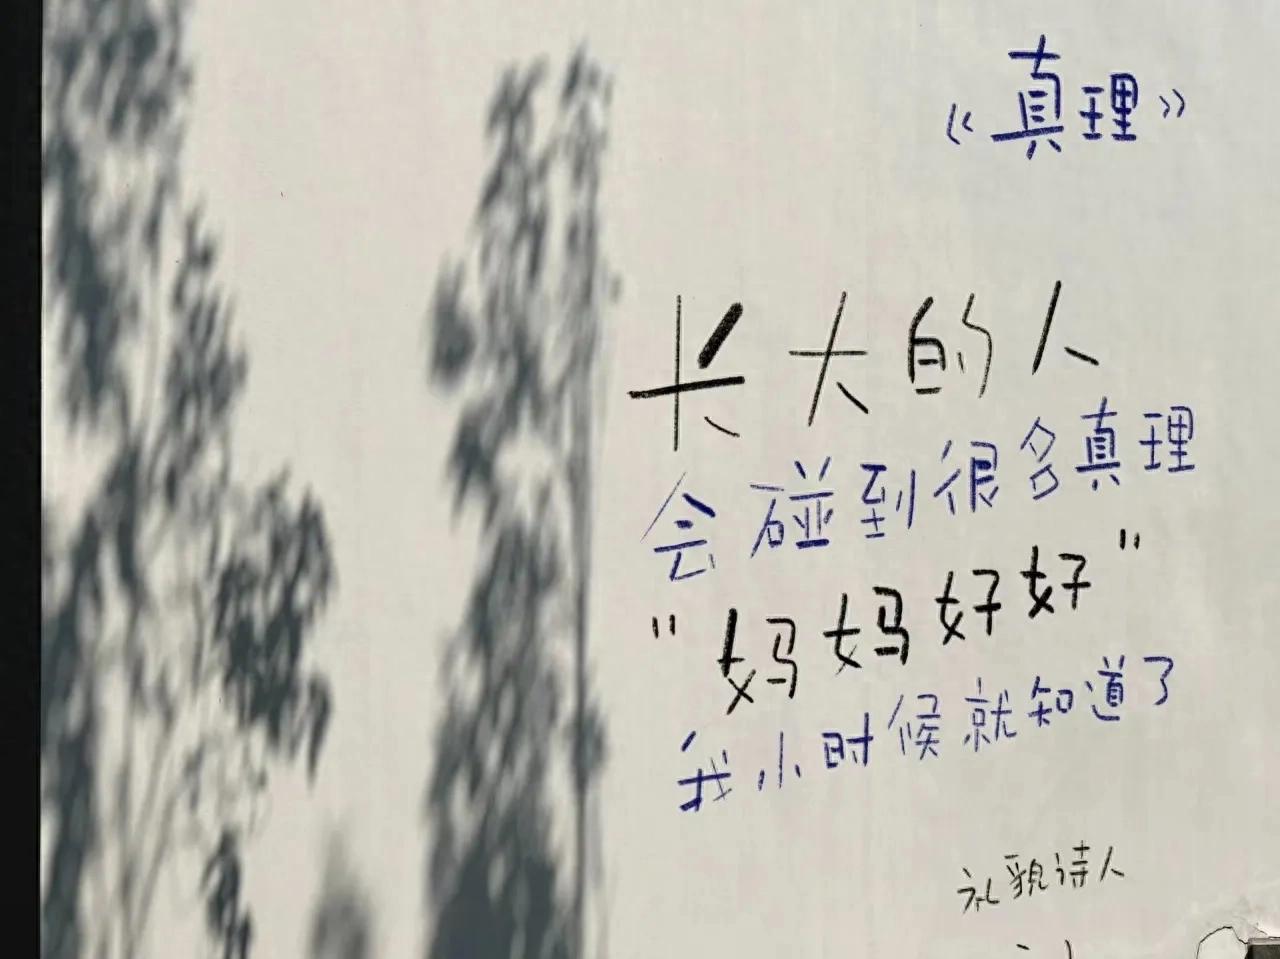 《真理》
长大的人
会碰到很多真理
"妈妈好好"
我小时候就知道了
礼貌诗人